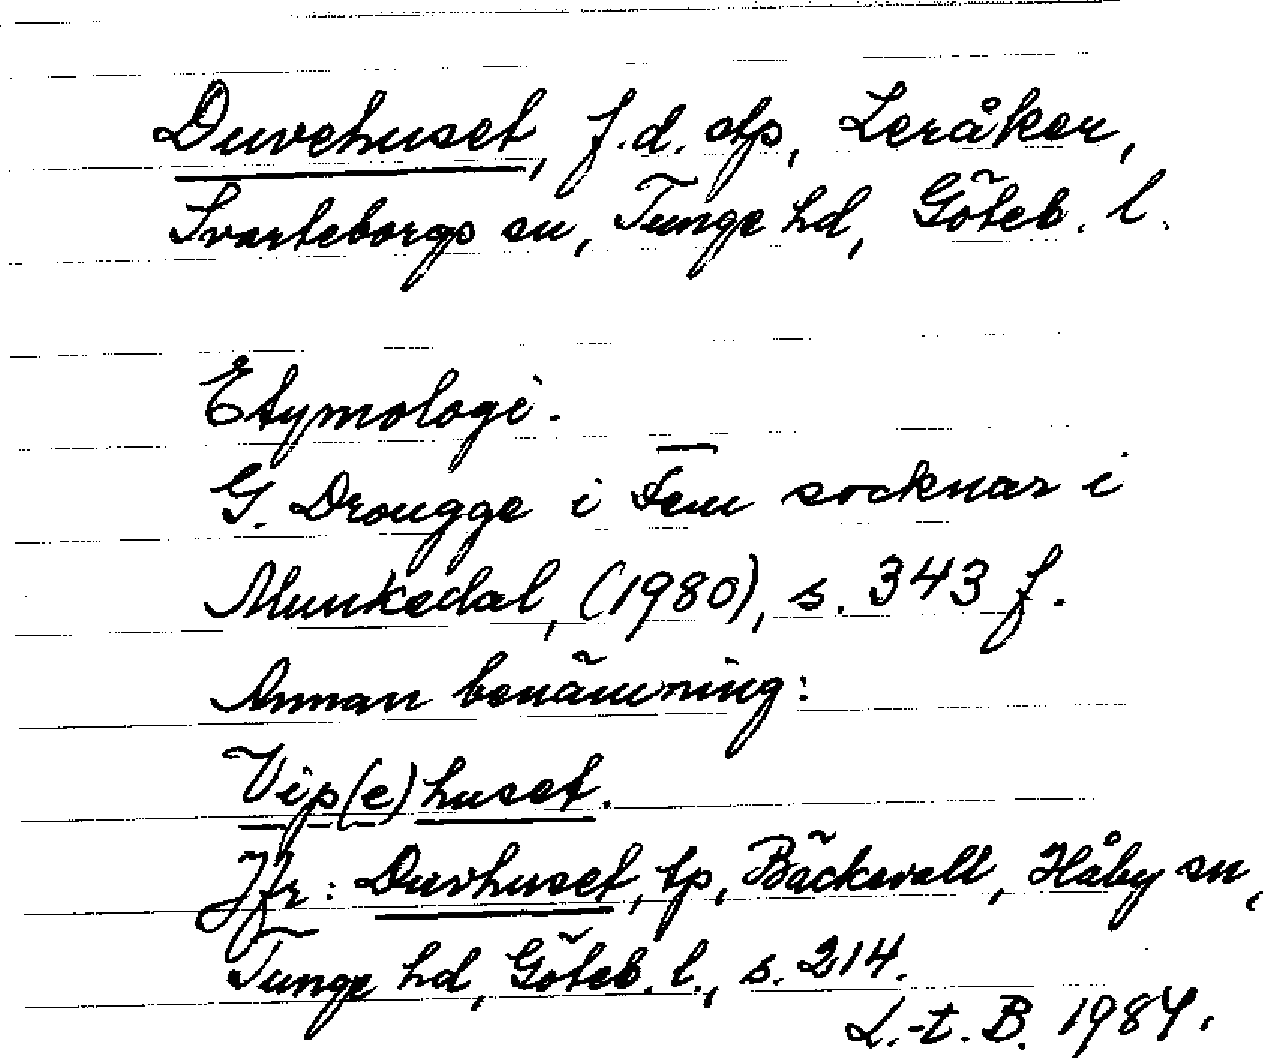 Duvehuset, f.d. dtp, Leråker,
Svarteborgs sn, Tunge hd, Göteb. l.
Etymologi.
G. Drougge i Fem socknar i
Munkedal, (1980), s. 343 f.
Annan benämning:
Vip(e)huset.
Jfr: Duvhuset, tp, Bäckevall, Håby sn,
Tunge hd, Göteb. l., s. 214.
L.-t. B. 1984.